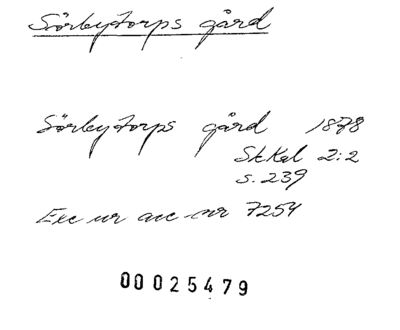 Sörbytorps gård
Sörbytorps gård 1878
St.Kal 2:2
s. 239
Exc ur acc nr 7254
00025479